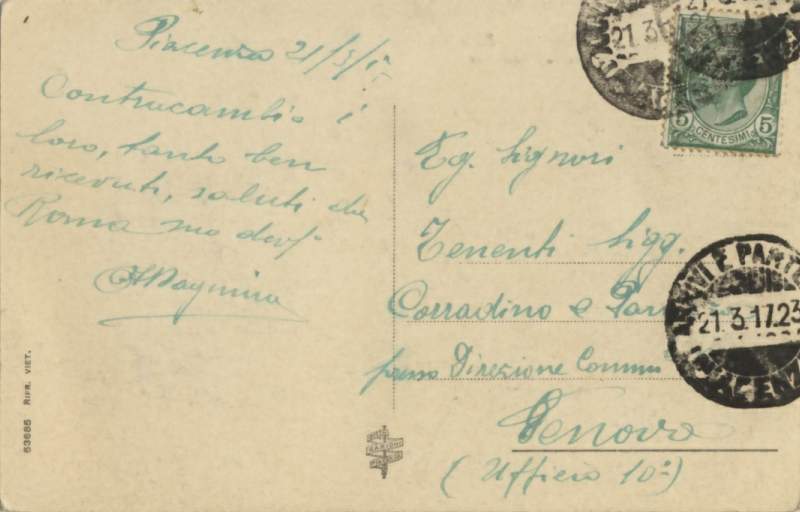 Piacenza 21/3/17
Contracambio i
loro, tanto ben
ricevuti, saluti da
Roma suo dev/
Eg. Signori
Tenenti Sigg.
Corradino e
presso Direzione
Genova
(Ufficio 10°)
5 CENTESIMI 5
21.3.17.23
53685 RIPR. VIET.